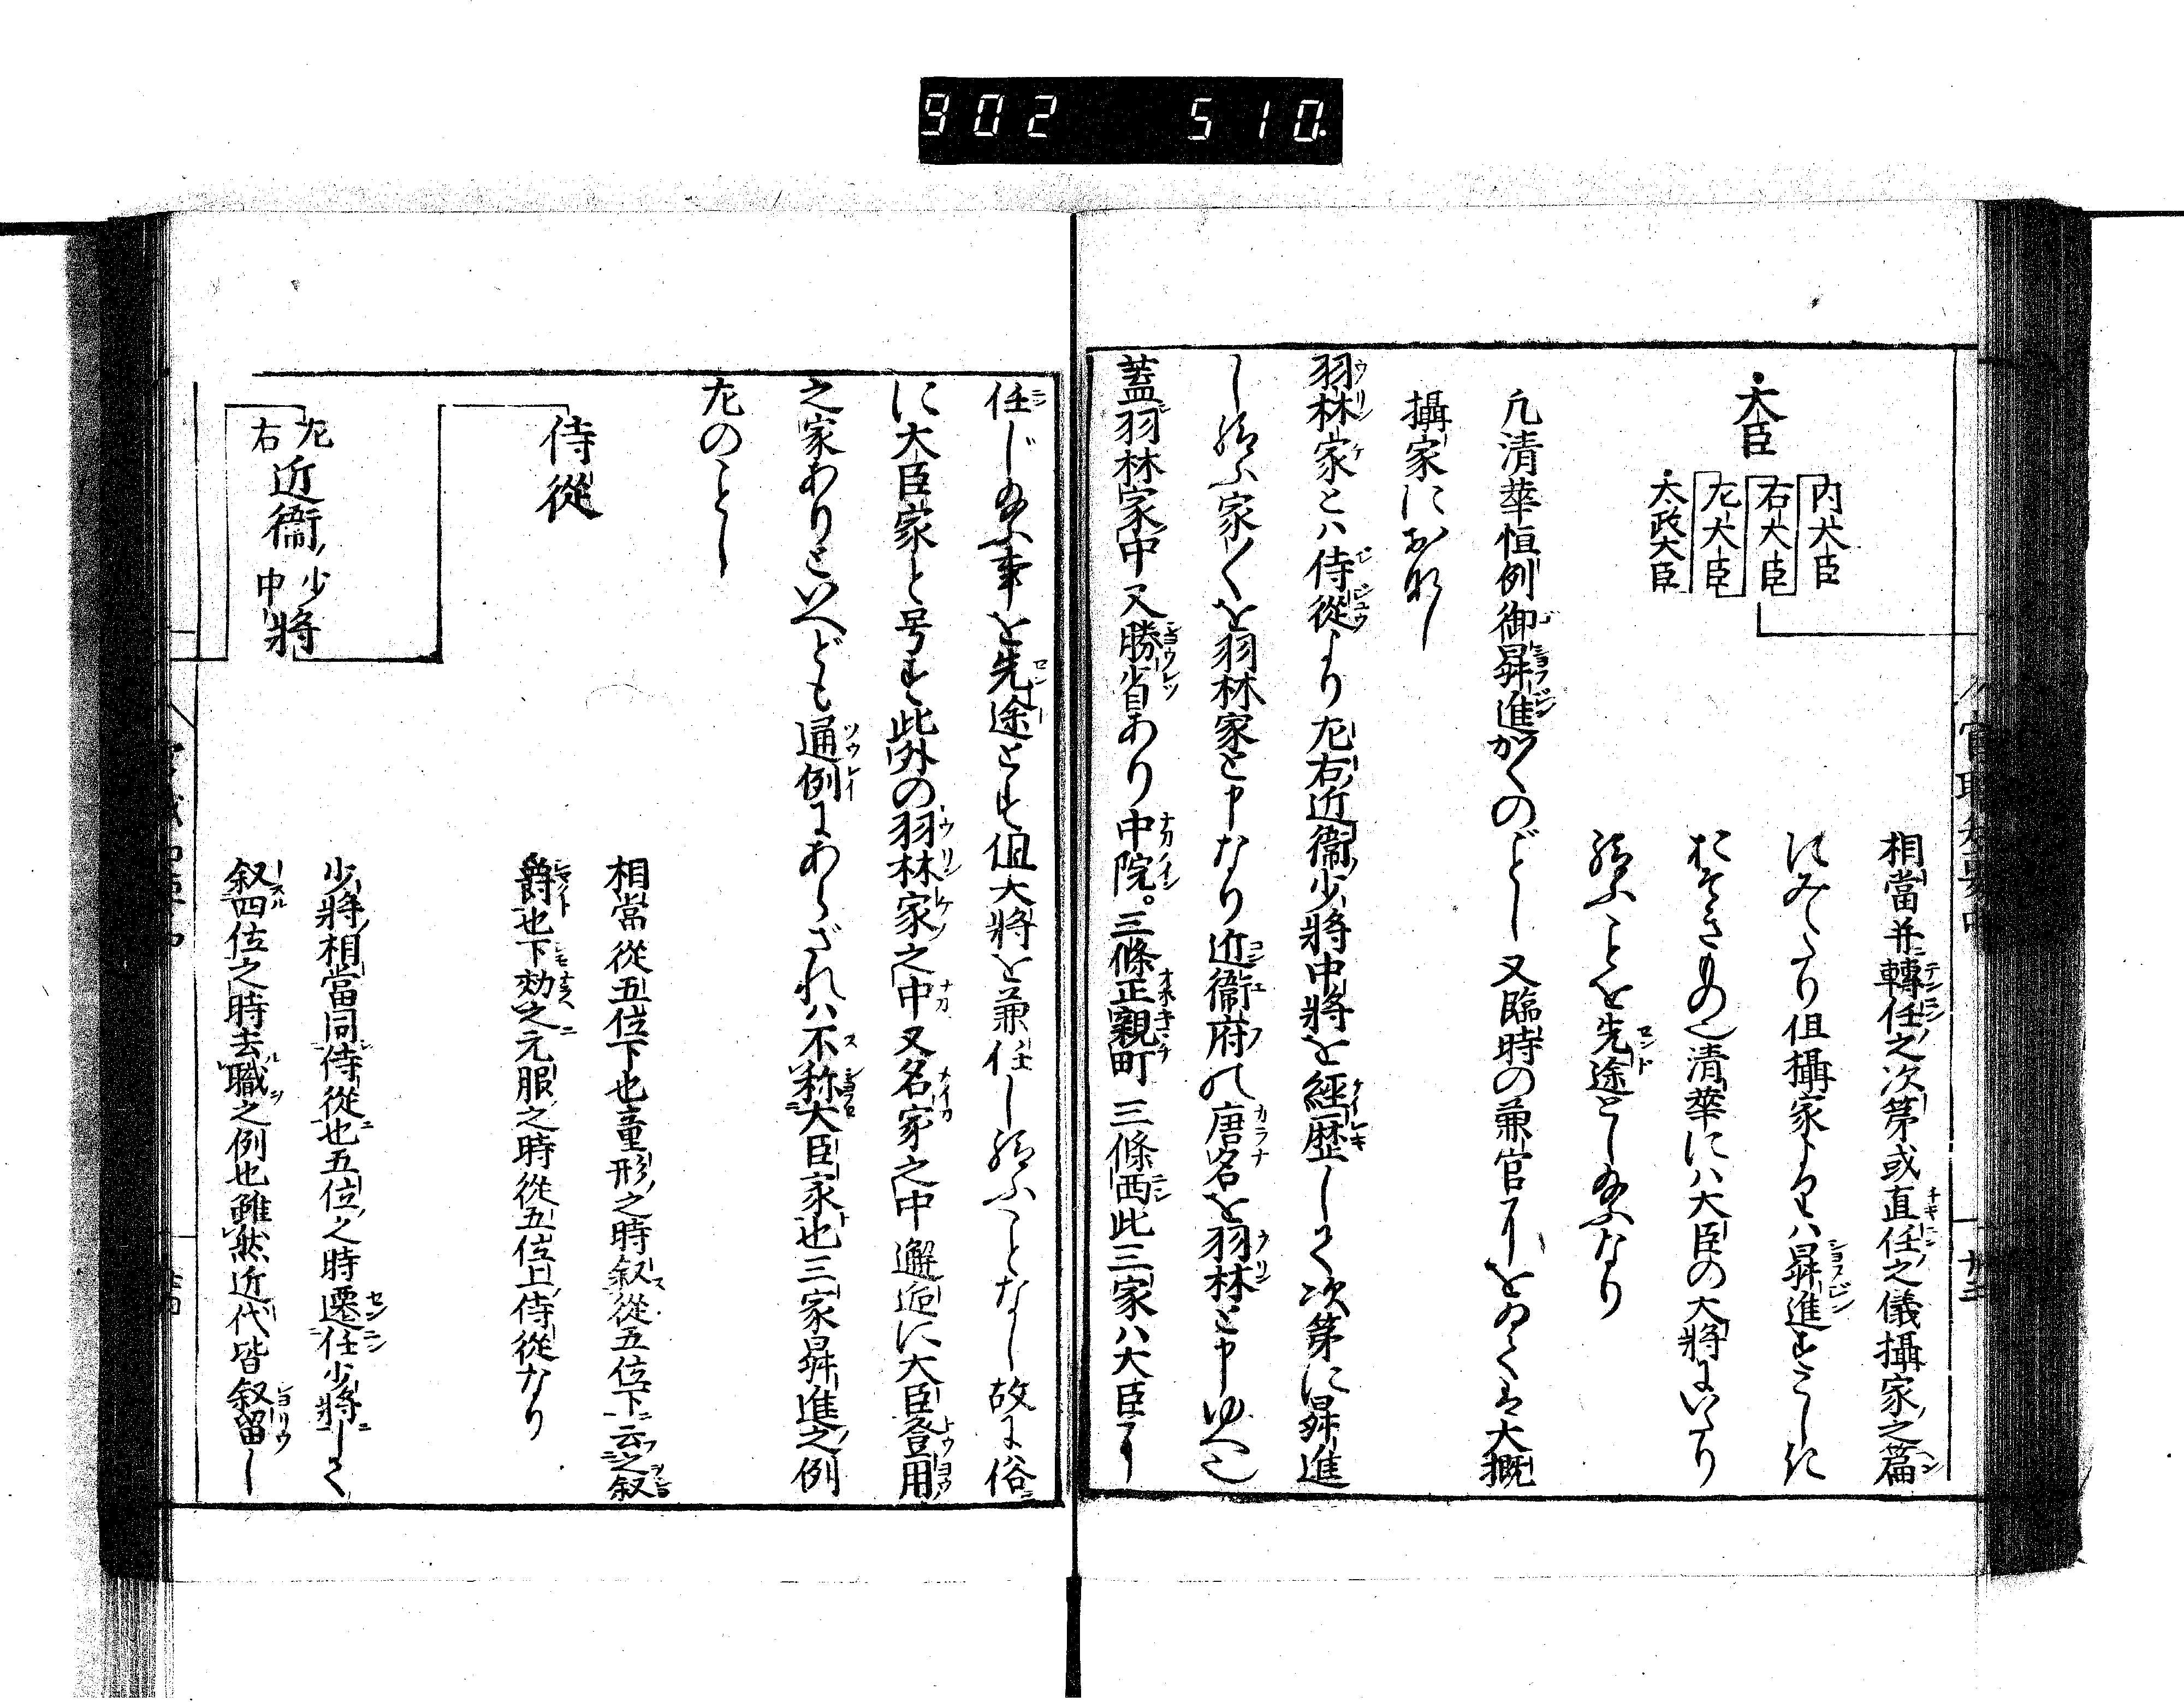 902 510
大臣
内大臣
右大臣
左大臣
太政大臣
相當并轉任之次第或直任之儀攝家之篇
にみへたり但攝家よりハ昇進すこしき
おそきのみ也清華にハ大臣の大將にいたり
給ふことを先途とし給ふなり
凡清華恒例御昇進かくのごとし又臨時の兼官等をのぞくは大概
攝家におなし
羽林家とハ侍從より左右近衞少將中將を經歴して次第に昇進
し給ふ家〱を羽林家と申なり近衞府の唐名を羽林と申ゆへ也
蓋羽林家中又勝劣あり中院。三條正親町 三條西此三家ハ大臣に
任じ給ふ事を先途とす但大將を兼任し給ふことなし故に俗
に大臣家と号す此外の羽林家之中又名家之中邂逅に大臣登用
之家ありといへども通例にあらざれハ不称大臣家也三家昇進之例
左のことし
侍從
相當從五位下也童形之時叙從五位下云之叙
爵也下効之元服之時從五位上侍從なり
左右近衞少中將
少將相當同侍從也五位之時遷任少將して
叙四位之時去職之例也雖然近代皆叙留し